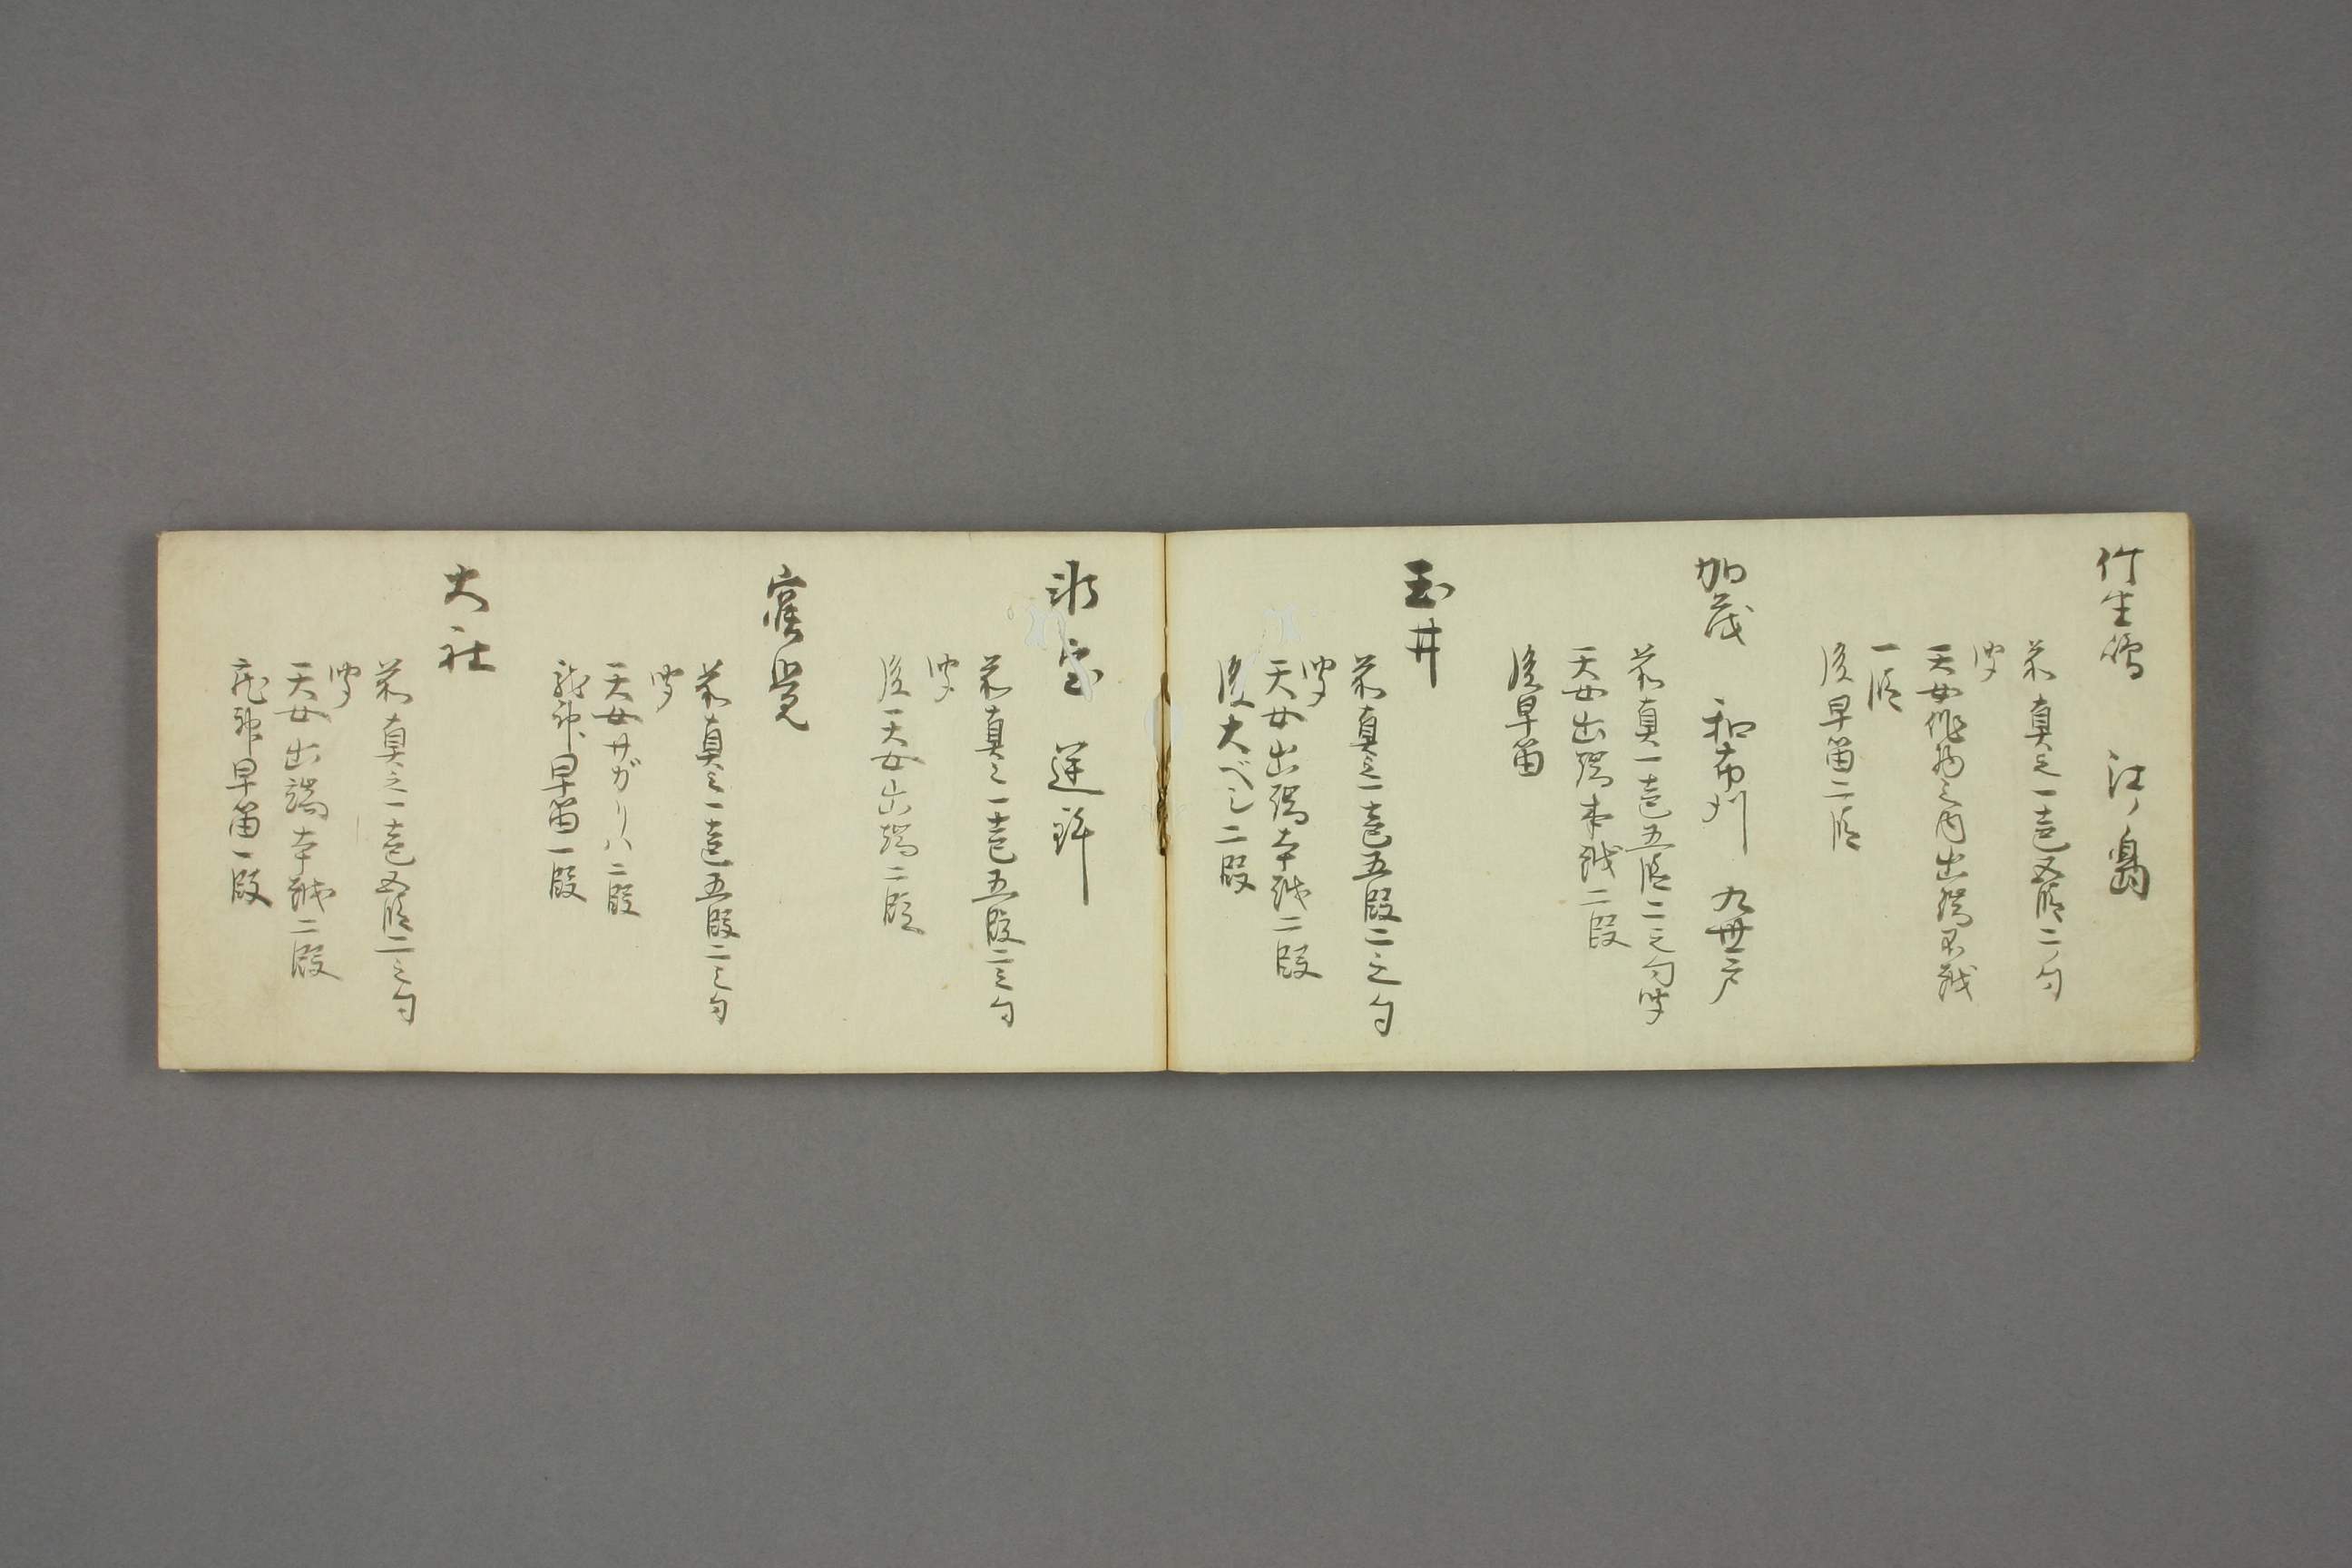 竹生嶋 江ノ島
前 真之一声五段二ノ句
天女作物之内出端不越
一段
後早笛二段
加茂 和布刈 九世戸
前真ノ一声五段二之句
天女出端本越二段
後早笛
玉井
前真之一声五段二之句
天女出端本越二段
後大べし二段
氷室 逆鉾
前真之一声五段二之句
後天女出端二段
寝覚
前真之一声五段二之句
天女サガリハ二段
龍神早笛一段
大社
前真之一声五段二之句
天女出端本越二段
龍神早笛一段